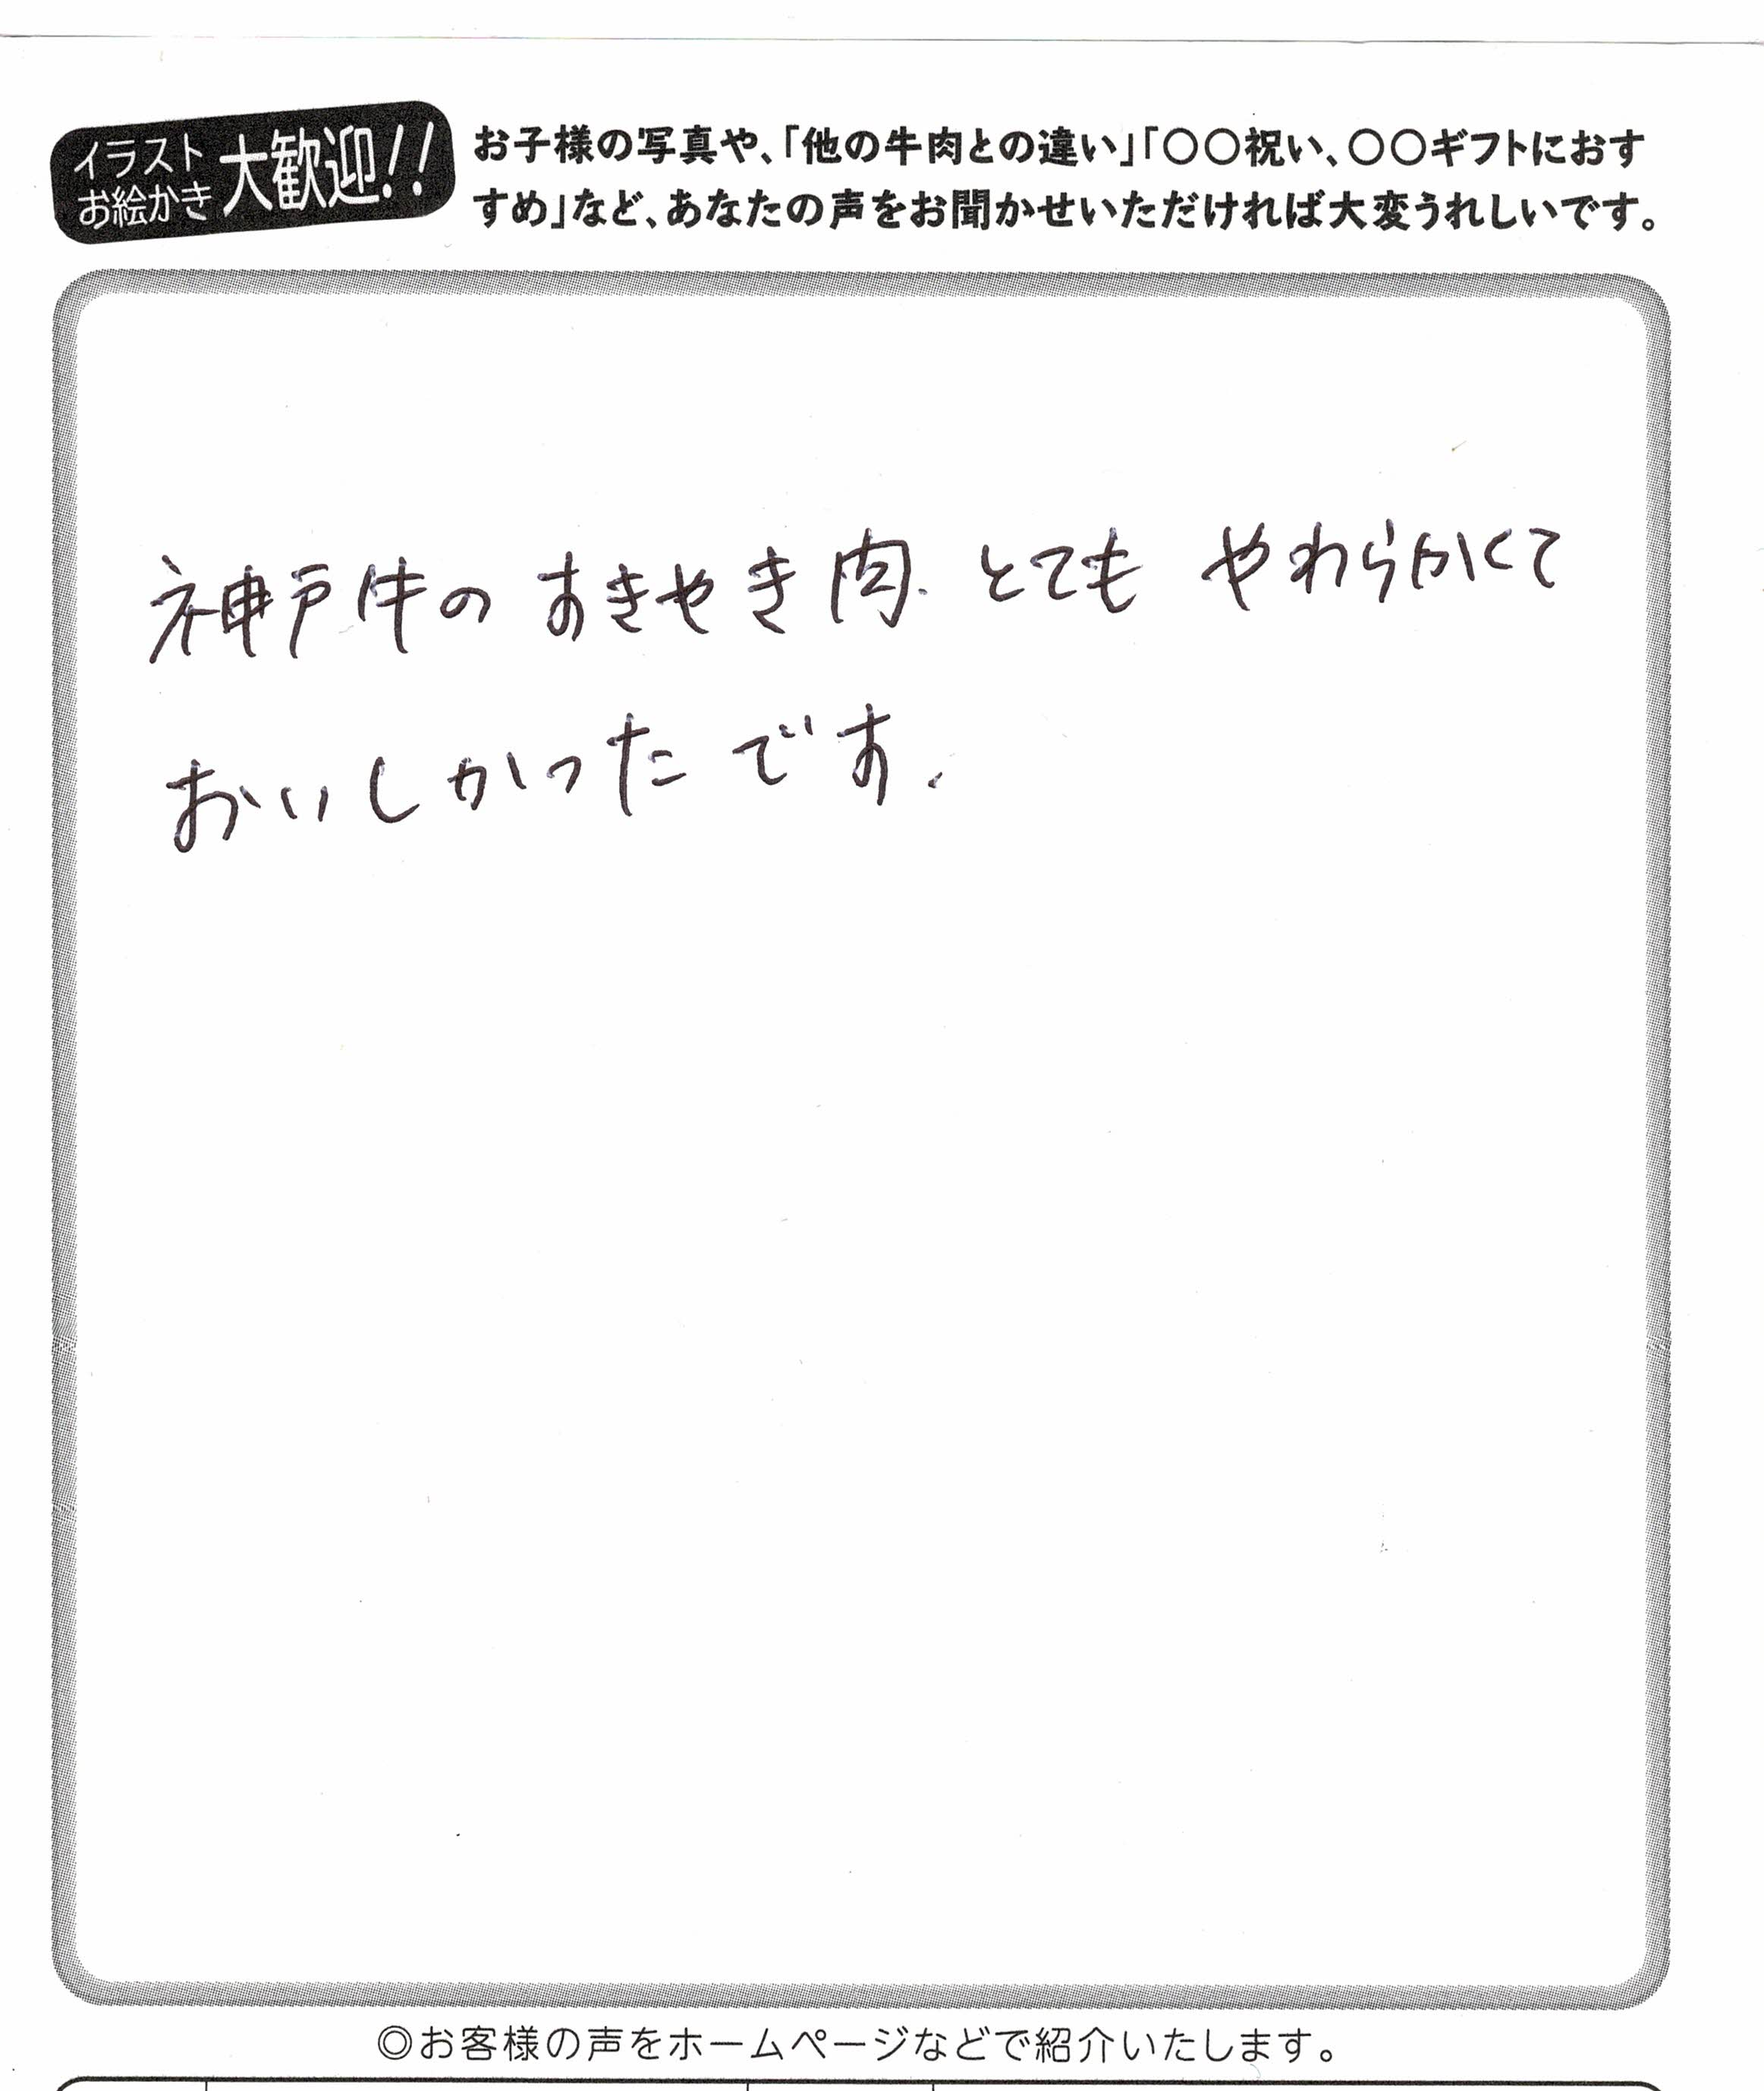 イラスト
お絵かき
大歓迎!!
お子様の写真や、「他の牛肉との違い」「〇〇祝い、〇〇ギフトにおす
すめ」など、あなたの声をお聞かせいただければ大変うれしいです。
神戸牛の すきやき肉、とても やわらかくて
おいしかったです。
◎お客様の声をホームページなどで紹介いたします。